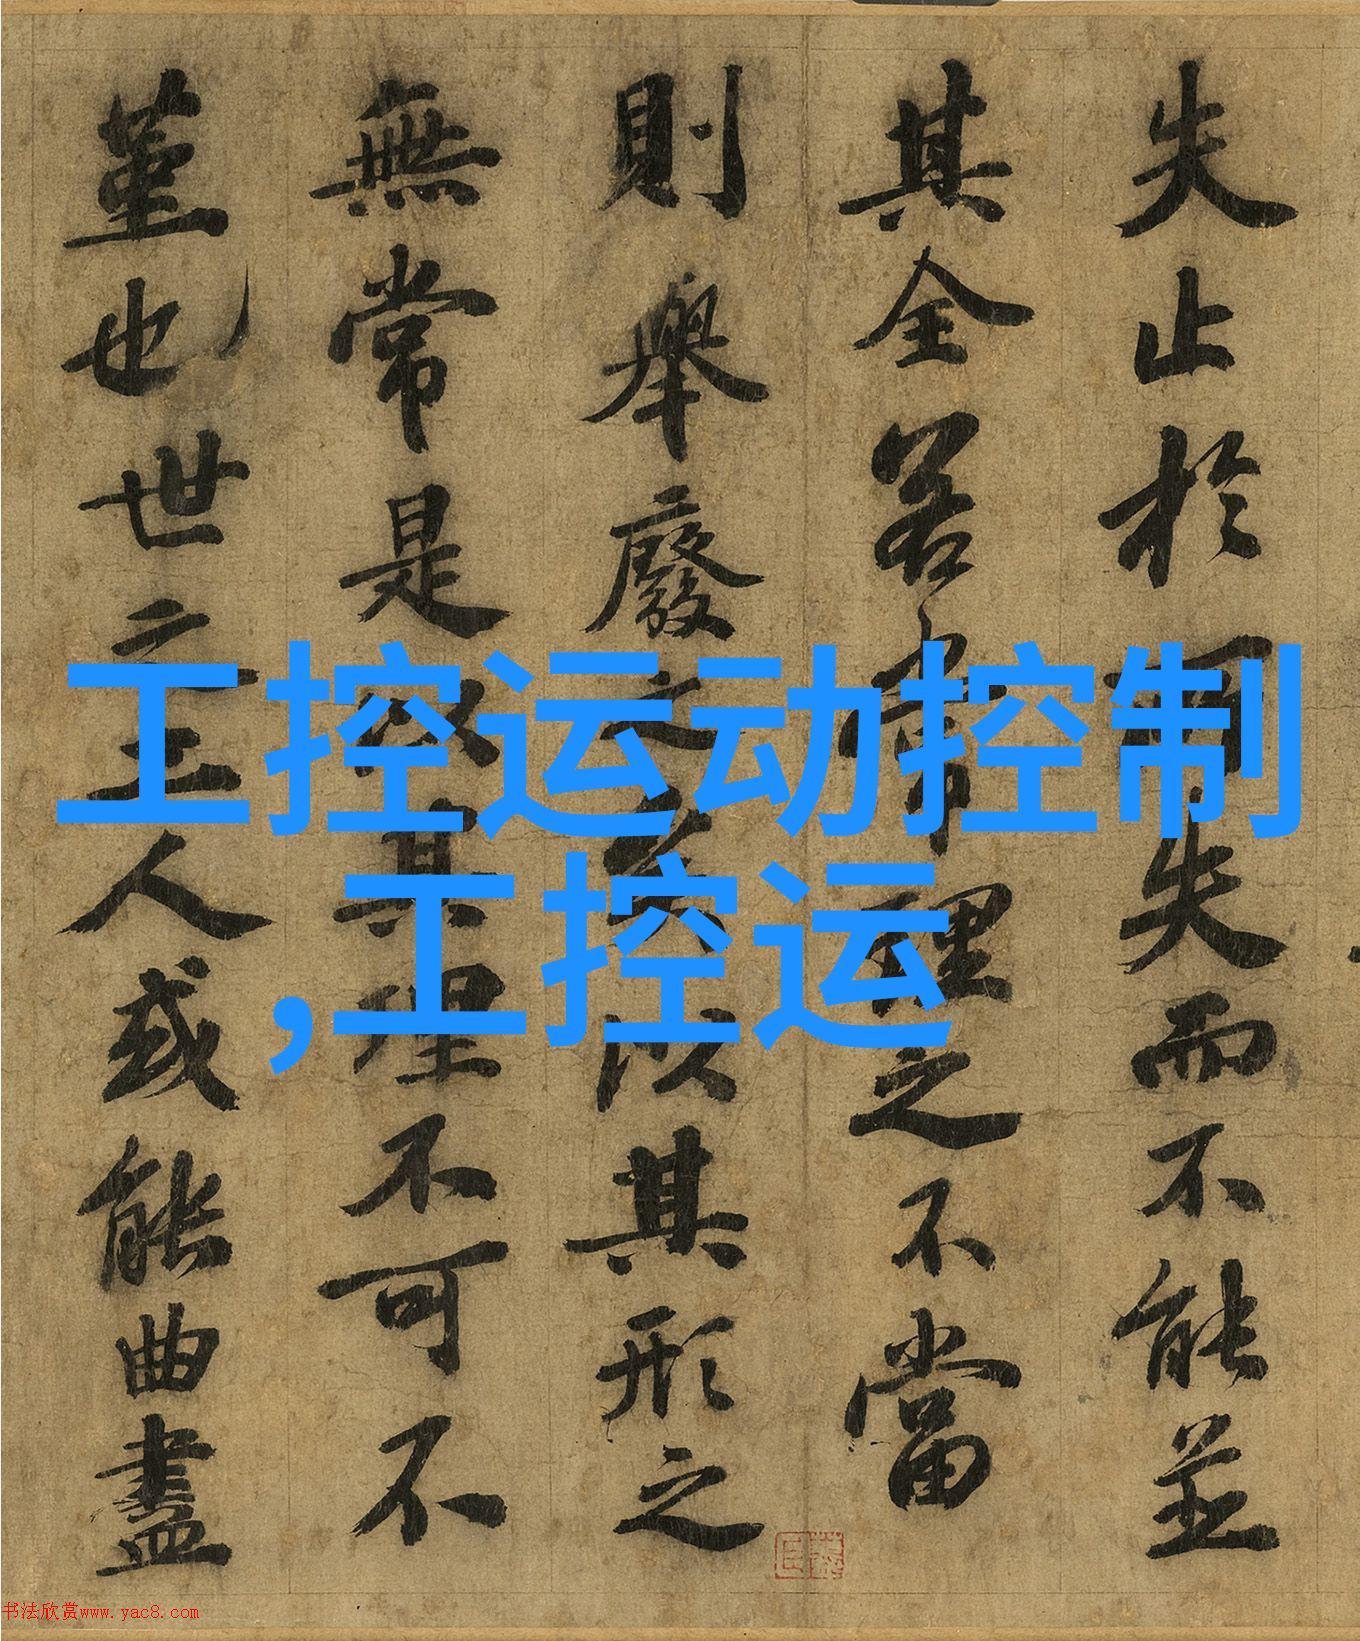 失止於所失而不能並
其全若常理之不當
則舉廢之矣以其形之
無常是以其理不可不
堇也世之工人或能曲盡
工控运动控制
,工控运
书法欣赏www.yac8.com